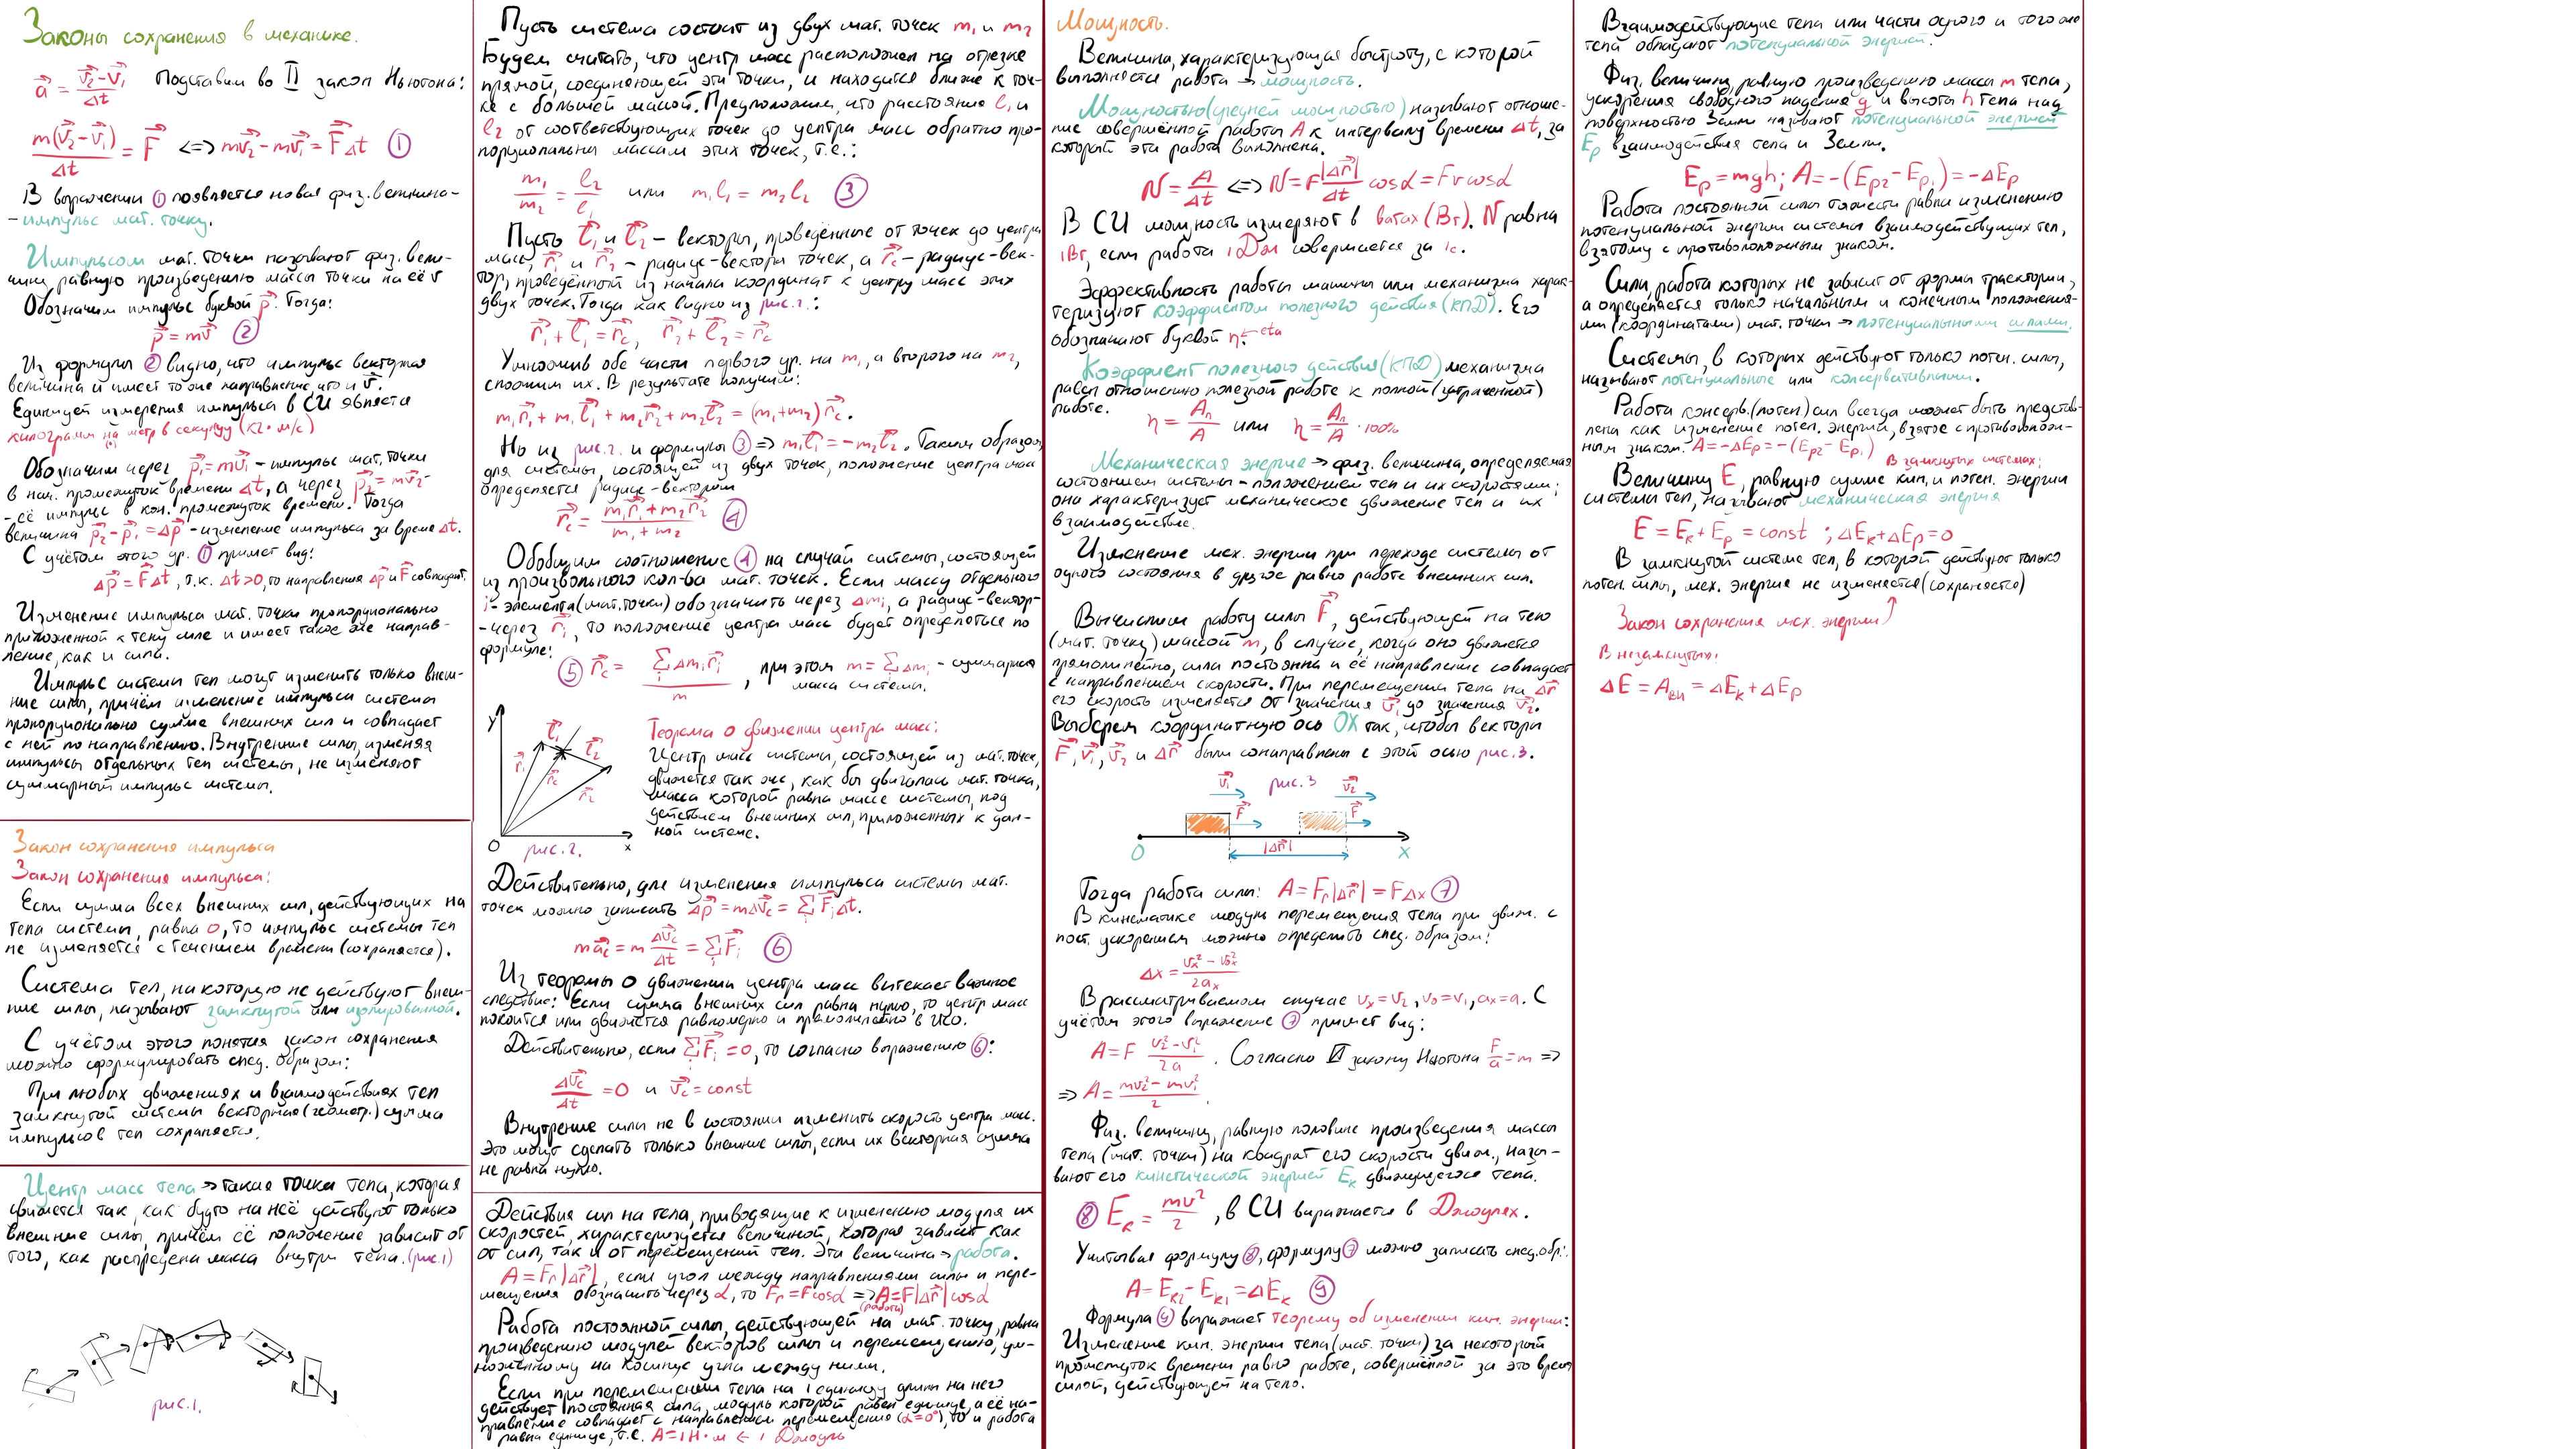 Законы сохранения в механике.
a = v₂-v₁ / Δt Подставим во II закон Ньютона:
m(v₂-v₁) / Δt = F <=> mv₂-mv₁ = FΔt ①
В выражении ① появляется новая физ. величина-
-импульс мат. точки.
Импульсом мат. точки называют физ. вели-
чину, равную произведению массы точки на её v
Обозначим импульс буквой p. Тогда:
p = mv ②
Из формулы ② видно, что импульс векторная
величина и имеет то же направление, что и v.
Единицей измерения импульса в СИ является
килограмм на метр в секунду (кг·м/с)
Обозначим через p₁=mv₁ - импульс мат. точки
в нач. промежуток времени Δt, а через p₂=mv₂-
-её импульс в кон. промежуток времени. Тогда
величина p₂-p₁=Δp - изменение импульса за время Δt.
С учётом этого ур. ① примет вид:
Δp = FΔt, т.к. Δt>0, то направления Δp и F совпадают.
Изменение импульса мат. точки пропорционально
приложенной к телу силе и имеет такое же направ-
ление, как и сила.
Импульс системы тел могут изменить только внеш-
ние силы, причём изменение импульса системы
пропорционально сумме внешних сил и совпадает
с ней по направлению. Внутренние силы, изменяя
импульсы отдельных тел системы, не изменяют
суммарный импульс системы.
Закон сохранения импульса
Закон сохранения импульса:
Если сумма всех внешних сил, действующих на
тела системы, равна 0, то импульс системы тел
не изменяется с течением времени (сохраняется).
Система тел, на которую не действуют внеш-
ние силы, называют замкнутой или изолированной.
С учётом этого понятия закон сохранения
можно сформулировать след. образом:
При любых движениях и взаимодействиях тел
замкнутой системы векторная (геометр.) сумма
импульсов тел сохраняется.
Центр масс тела → такая точка тела, которая
движется так, как будто на неё действуют только
внешние силы, причём её положение зависит от
того, как распределена масса внутри тела. (рис.1)
рис.1.
Пусть система состоит из двух мат. точек m₁ и m₂
Будем считать, что центр масс расположен на отрезке
прямой, соединяющей эти точки, и находится ближе к точ-
ке с большей массой. Предположим, что расстояние l₁ и
l₂ от соответствующих точек до центра масс обратно про-
порциональны массам этих точек, т.е.:
m₁/m₂ = l₂/l₁ или m₁l₁ = m₂l₂ ③
Пусть l₁ и l₂ - векторы, проведённые от точек до центра
масс, r₁ и r₂ - радиус-вектора точек, а rc - радиус-век-
тор, проведённый из начала координат к центру масс этих
двух точек. Тогда как видно из рис.2.:
r₁ + l₁ = rc, r₂ + l₂ = rc
Умножив обе части первого ур. на m₁, а второго на m₂,
сложим их. В результате получим:
m₁r₁ + m₁l₁ + m₂r₂ + m₂l₂ = (m₁+m₂)rc.
Но из рис.2. и формулы ③ => m₁l₁ = -m₂l₂. Таким образом,
для системы, состоящей из двух точек, положение центра масс
определяется радиус-вектором
rc = m₁r₁+m₂r₂ / m₁+m₂ ④
Обобщим соотношение ④ на случай системы, состоящей
из произвольного кол-ва мат. точек. Если массу отдельного
i-элемента (мат. точки) обозначить через Δmᵢ, а радиус-вектор-
-через rᵢ, то положение центра масс будет определяться по
формуле:
⑤ rc = ΣΔmᵢrᵢ / m, при этом m = ΣΔmᵢ - суммарная
масса системы.
y
l₁
l₂
r₁
rc
r₂
O
x
рис.2.
Теорема о движении центра масс:
Центр масс системы, состоящей из мат. точек,
движется так же, как бы двигалась мат. точка,
масса которой равна массе системы, под
действием внешних сил, приложенных к дан-
ной системе.
Действительно, для изменения импульса системы мат.
точек можно записать Δp = mΔvc = ΣFᵢΔt.
mac = m Δvc/Δt = ΣFᵢ ⑥
Из теоремы о движении центра масс вытекает важное
следствие: Если сумма внешних сил равна нулю, то центр масс
покоится или движется равномерно и прямолинейно в ИСО.
Действительно, если ΣFᵢ = 0, то согласно выражению ⑥:
Δvc/Δt = 0 и vc = const
Внутренние силы не в состоянии изменить скорость центра масс.
Это могут сделать только внешние силы, если их векторная сумма
не равна нулю.
Действия сил на тела, приводящие к изменению модуля их
скоростей, характеризуется величиной, которая зависит как
от сил, так и от перемещений тел. Эта величина → работа.
A = Fr|Δr|, если угол между направлениями силы и пере-
мещения обозначить через α, то Fr = Fcosα => A=F|Δr|cosα
(работа)
Работа постоянной силы, действующей на мат. точку, равна
произведению модулей векторов силы и перемещению, ум-
ноженному на косинус угла между ними.
Если при перемещении тела на 1 единицу длины на него
действует постоянная сила, модуль которой равен единице, а её на-
правление совпадает с направлением перемещения (α=0°), то и работа
равна единице, т.е. A=1Н·м ← 1 Джоуль
Мощность.
Величина, характеризующая быстроту, с которой
выполняется работа → мощность.
Мощностью (средней мощностью) называют отноше-
ние совершённой работы A к интервалу времени Δt, за
который эта работа выполнена.
N = A/Δt <=> N = F|Δr|/Δt cosα = Fvcosα
В СИ мощность измеряют в ватах (Вт). N равна
1Вт, если работа 1Дж совершается за 1с.
Эффективность работы машины или механизма харак-
теризуют коэффициентом полезного действия (КПД). Его
обозначают буквой η. ← eta
Коэффиент полезного действия (КПД) механизма
равен отношению полезной работе к полной (затраченной)
работе.
η = Aп/A или η = Aп/A · 100%
Механическая энергия → физ. величина, определяемая
состоянием системы - положением тел и их скоростями;
она характеризует механическое движение тел и их
взаимодействие.
Изменение мех. энергии при переходе системы от
одного состояния в другое равно работе внешних сил.
Вычислим работу силы F, действующей на тело
(мат. точку) массой m, в случае, когда оно движется
прямолинейно, сила постоянна и её направление совпадает
с направлением скорости. При перемещении тела на Δr
его скорость изменяется от значения v₁ до значения v₂.
Выберем координатную ось OX так, чтобы вектори
F, v₁, v₂ и Δr были сонаправлены с этой осью рис.3.
v₁ рис.3 v₂
F F
O |Δr| X
Тогда работа силы: A = Fr|Δr| = FΔx ⑦
В кинематике модуль перемещения тела при движ. с
пост. ускорением можно определить след. образом:
Δx = vx² - v₀x² / 2ax
В рассматриваемом случае vx=v₂, v₀=v₁, ax=a. С
учётом этого выражение ⑦ примет вид:
A = F v₂²-v₁² / 2a. Согласно II закону Ньютона F/a = m =>
=> A = mv₂² - mv₁² / 2.
Физ. величину, равную половине произведения массы
тела (мат. точки) на квадрат его скорости движ., назы-
вают его кинетической энергией Eк движущегося тела.
⑧ Eк = mv²/2, в СИ выражается в Джоулях.
Учитывая формулу ⑧, формулу ⑦ можно записать след. обр.:
A = Eк₂ - Eк₁ = ΔEк ⑨
Формула ⑨ выражает теорему об изменении кин. энергии:
Изменение кин. энергии тела (мат. точки) за некоторый
промежуток времени равно работе, совершённой за это время
силой, действующей на тело.
Взаимодействующие тела или части одного и того же
тела обладают потенциальной энергией.
Физ. величину, равную произведению массы m тела,
ускорения свободного падения g и высоты h тела над
поверхностью Земли называют потенциальной энергией
Ep взаимодействия тела и Земли.
Ep = mgh; A = -(Ep₂ - Ep₁) = -ΔEp
Работа постоянной силы тяжести равна изменению
потенциальной энергии системы взаимодействующих тел,
взятому с противоположным знаком.
Силы, работа которых не зависит от формы траектории,
а определяется только начальным и конечным положения-
ми (координатами) мат. точки → потенциальными силами.
Системы, в которых действуют только потен. силы,
называют потенциальные или консервативными.
Работа консерв. (потен.) сил всегда может быть представ-
лена как изменение потен. энергии, взятое с противополож-
ным знаком. A = -ΔEp = -(Ep₂ - Ep₁)
В замкнутых системах:
Величину E, равную сумме кин. и потен. энергии
системы тел, называют механическая энергия
E = Eк + Ep = const ; ΔEк + ΔEp = 0
В замкнутой системе тел, в которой действуют только
потен. силы, мех. энергия не изменяется (сохраняется)
Закон сохранения мех. энергии
В незамкнутых:
ΔE = Aвн = ΔEк + ΔEp